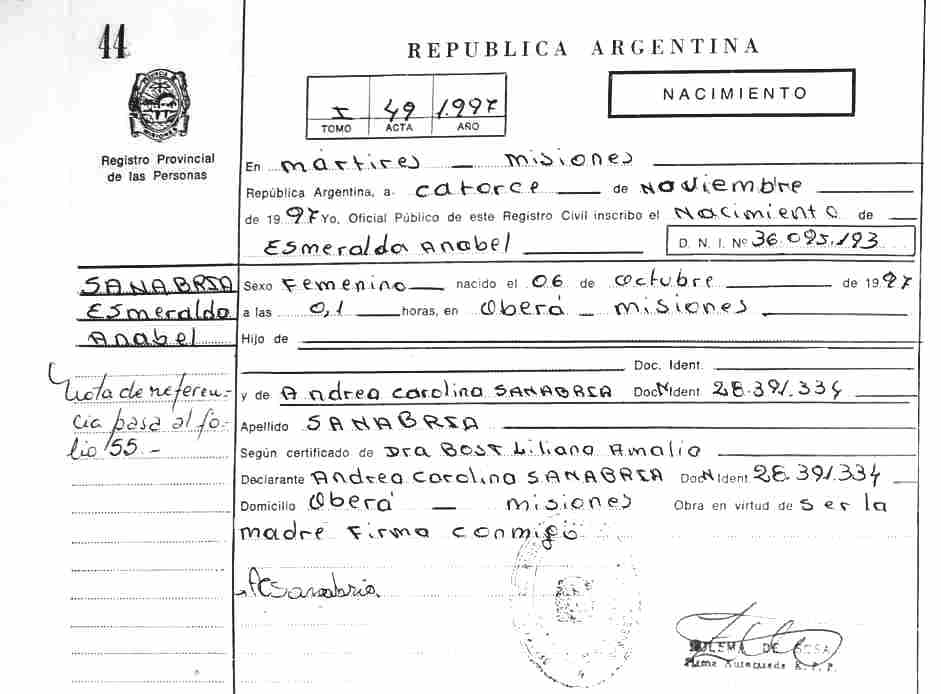 44
REPUBLICA ARGENTINA
I 49 1.997
TOMO ACTA AÑO
NACIMIENTO
Registro Provincial
de las Personas
En mártires — misiones
República Argentina, a catorce de Noviembre
de 1997 Yo, Oficial Público de este Registro Civil inscribo el Nacimiento de
Esmeralda Anabel D. N. I. Nº 36.095.193
SANABRIA
Esmeralda
Anabel
Nota de referen-
cia pasa al fo-
lio 55.-
Sexo Femenino nacido el 06 de octubre de 1997
a las 0,1 horas, en Oberá — misiones
Hijo de
Doc. Ident.
y de Andrea Carolina SANABRIA Doc N Ident 28.391.334
Apellido SANABRIA
Según certificado de Dra Bost Liliana Amalia
Declarante Andrea Carolina SANABRIA Doc N Ident 28.391.334
Domicilio Oberá — misiones Obra en virtud de Ser la
madre Firma conmigo
ACSanabria
DE SOSA